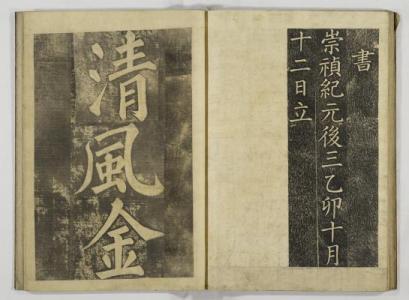 書
崇禎紀元後三乙卯十月
十二日立
清風金